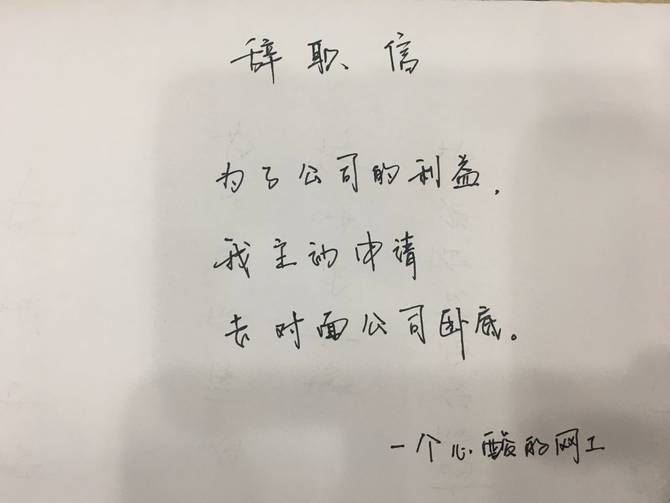 辞职信
为了公司的利益,
我主动申请
去对面公司卧底。
一个心酸的网工